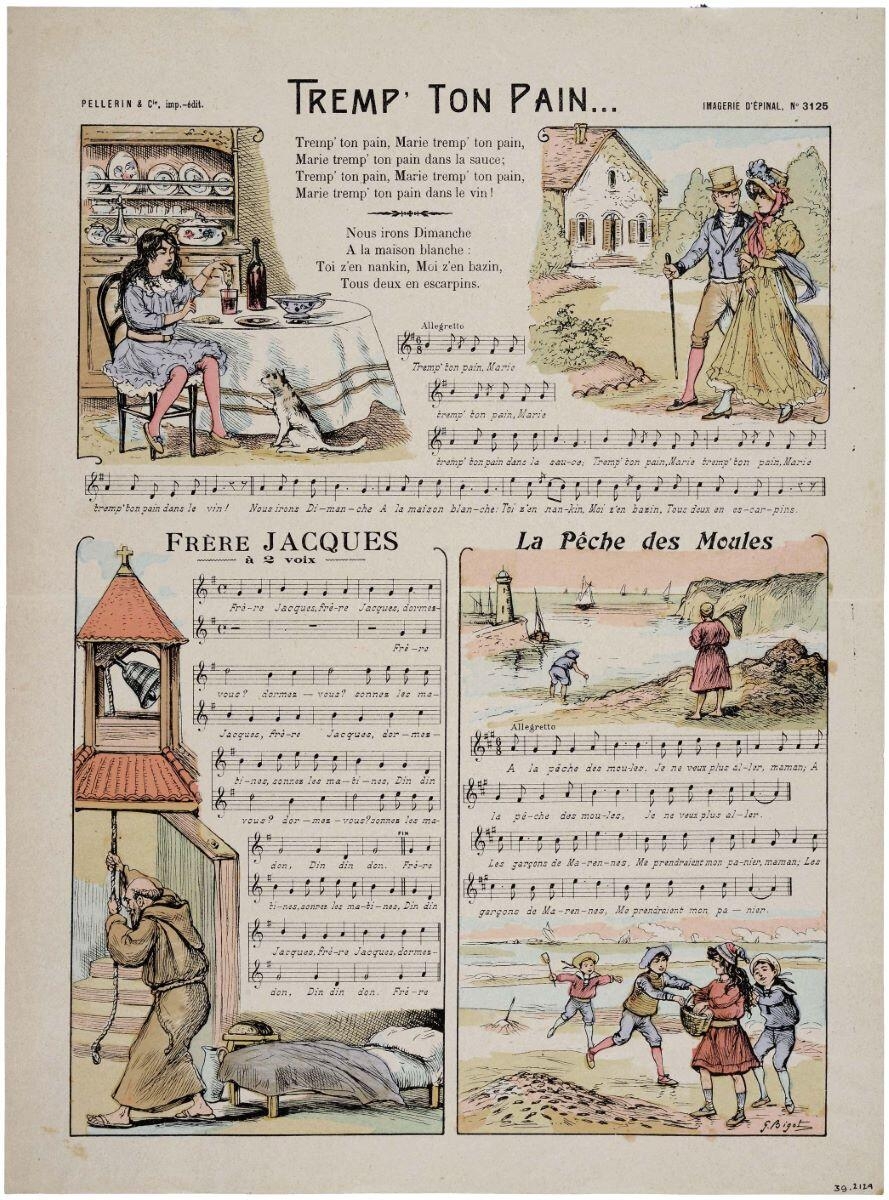 PELLERIN & Cie, imp.-édit.
TREMP' TON PAIN...
IMAGERIE D'ÉPINAL, No 3125
Tremp' ton pain, Marie tremp' ton pain,
Marie tremp' ton pain dans la sauce;
Tremp' ton pain, Marie tremp' ton pain,
Marie tremp' ton pain dans le vin !
Nous irons Dimanche
A la maison blanche :
Toi z'en nankin, Moi z'en bazin,
Tous deux en escarpins.
Allegretto
Tremp' ton pain, Marie
tremp' ton pain, Marie
tremp' ton pain dans la sau-ce; Tremp' ton pain, Marie tremp' ton pain, Marie
tremp' ton pain dans le vin ! Nous irons Di-man-che A la maison blan-che: Toi z'en nan-kin, Moi z'en bazin, Tous deux en es-car-pins.
FRÈRE JACQUES
à 2 voix
Frè-re Jacques, frè-re Jacques, dormez-
Frè-re
vous? dormez - vous? sonnez les ma-
Jacques, frè-re Jacques, dor-mez-
ti-nes, sonnez les ma-ti-nes, Din din
vous? dor-mez-vous? sonnez les ma-
FIN
don, Din din don. Frè-re
ti-nes, sonnez les ma-ti-nes, Din din
Jacques, frè-re Jacques, dormez-
don, Din din don. Frè-re
La Pêche des Moules
Allegretto
A la pêche des mou-les, Je ne veux plus al-ler, maman; A
la pê-che des mou-les, Je ne veux plus al-ler.
Les garçons de Ma-ren-nes, Me prendraient mon pa-nier, maman; Les
garçons de Ma-ren-nes, Me prendraient mon pa-nier.
G. Bigot
39.2124